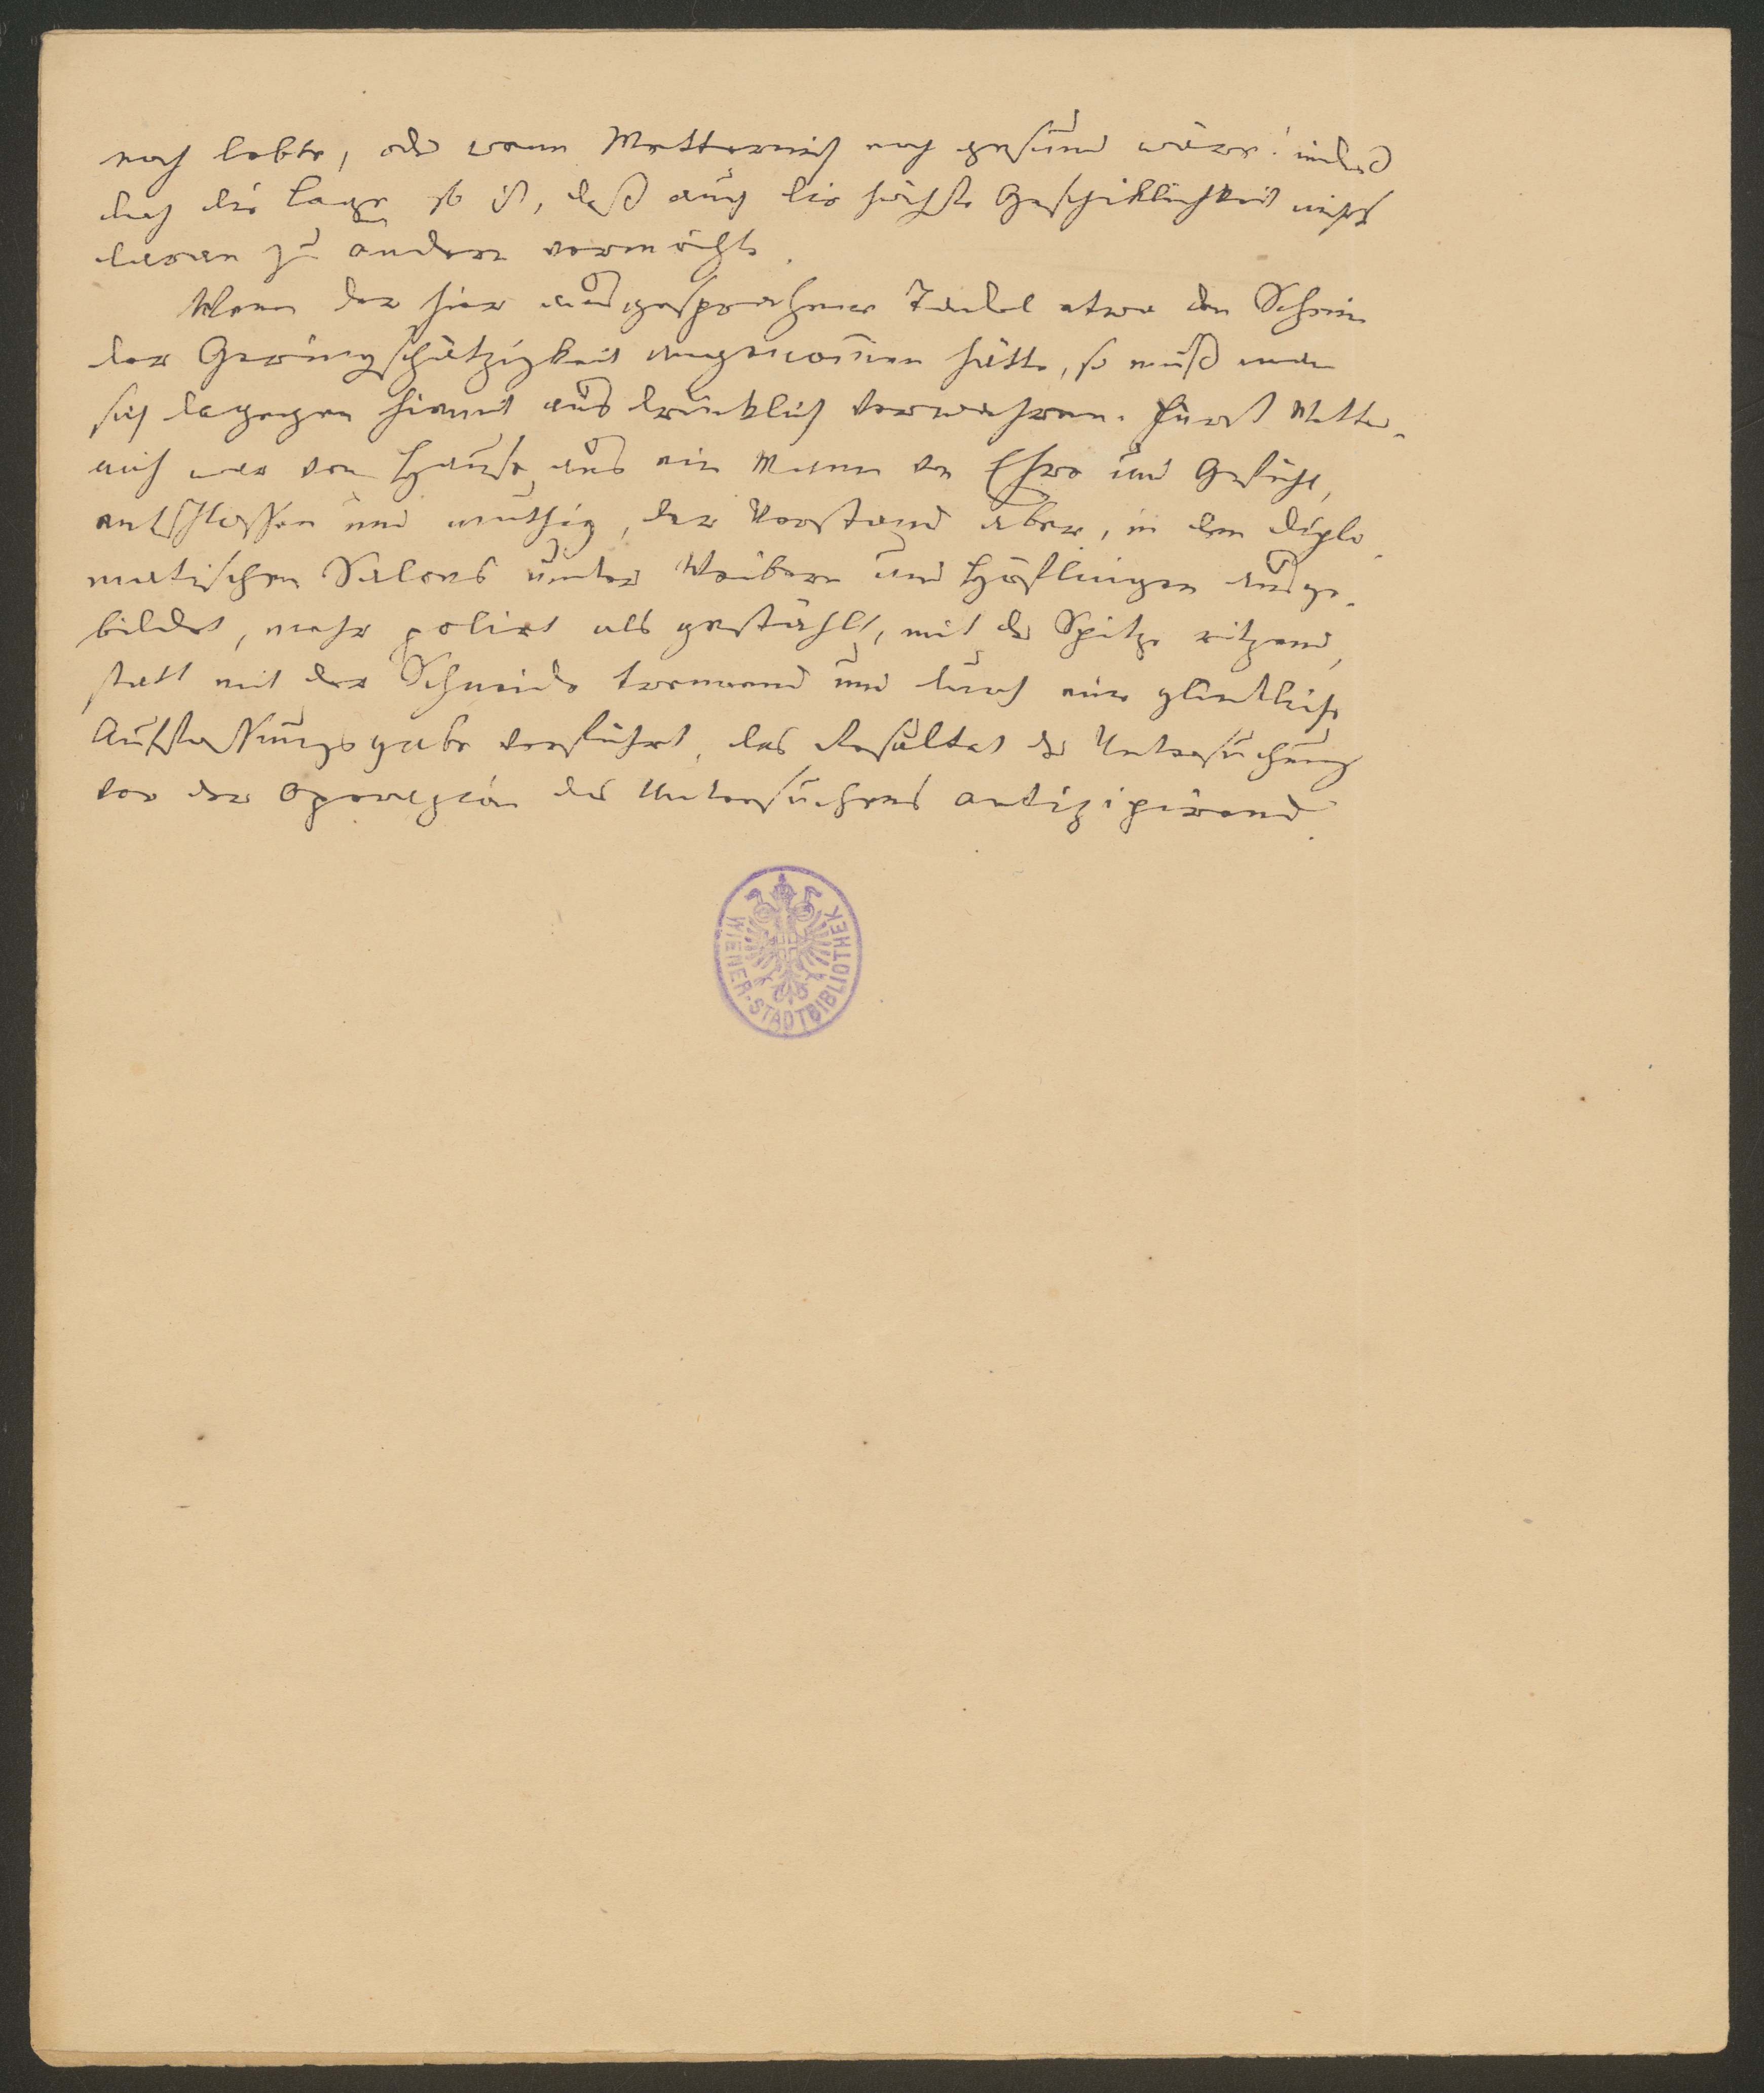 noch lebte, oder wenn Metternich noch gesund wäre! indeß
doch die Lage so ist, daß auch die höchste Geschiklichkeit nichts
daran zu ändern vermöchte.
Wenn der hier ausgesprochene Tadel etwa den Schein
der Geringschätzigkeit angenom̄en hätte, so muß man
sich dagegen hiemit ausdrücklich verwahren. Fürst Metter-
nich war von Hause aus ein Mann von Ehre und Gefühl,
entschlossen und muthig, der Verstand aber, in den diplo-
matischen Salons unter Weibern und Höflingen ausge-
bildet, mehr polirt als gestählt, mit der Spitze ritzend,
statt mit der Schneide trennend und durch eine glückliche
Auffassungsgabe verführt, das Resultat der Untersuchung
vor der Operazion des Untersuchens antizipirend.
WIENER-STADTBIBLIOTHEK